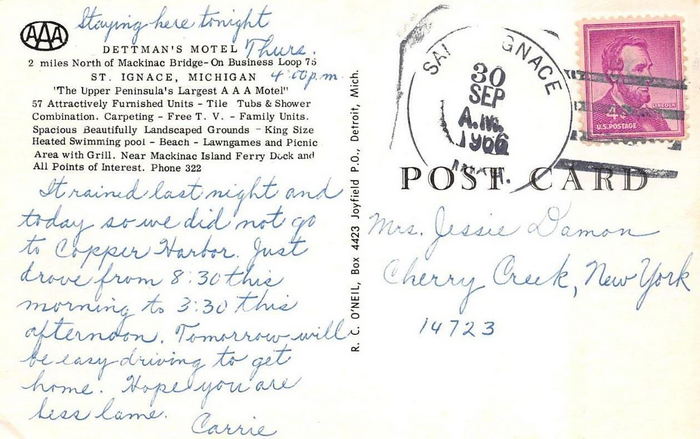 Staying here tonight
AAA
DETTMAN'S MOTEL Thurs.
2 miles North of Mackinac Bridge-On Business Loop 75
ST. IGNACE, MICHIGAN 4:00 p.m.
'The Upper Peninsula's Largest A A A Motel"
57 Attractively Furnished Units - Tile Tubs & Shower
Combination. Carpeting - Free T. V. - Family Units.
Spacious Beautifully Landscaped Grounds - King Size
Heated Swimming pool - Beach - Lawngames and Picnic
Area with Grill. Near Mackinac Island Ferry Dock and
All Points of Interest. Phone 322
It rained last night and
today so we did not go
to Copper Harbor. Just
drove from 8:30 this
morning to 3:30 this
afternoon. Tomorrow will
be easy driving to get
home. Hope you are
less lame.
Carrie
R. C. O'NEIL, Box 4423 Joyfield P.O., Detroit, Mich.
SAI GNACE
30
SEP
A.M.
1966
MICH.
LINCOLN
4¢
U.S. POSTAGE
POST CARD
Mrs. Jessie Damon
Cherry Creek, New York
14723